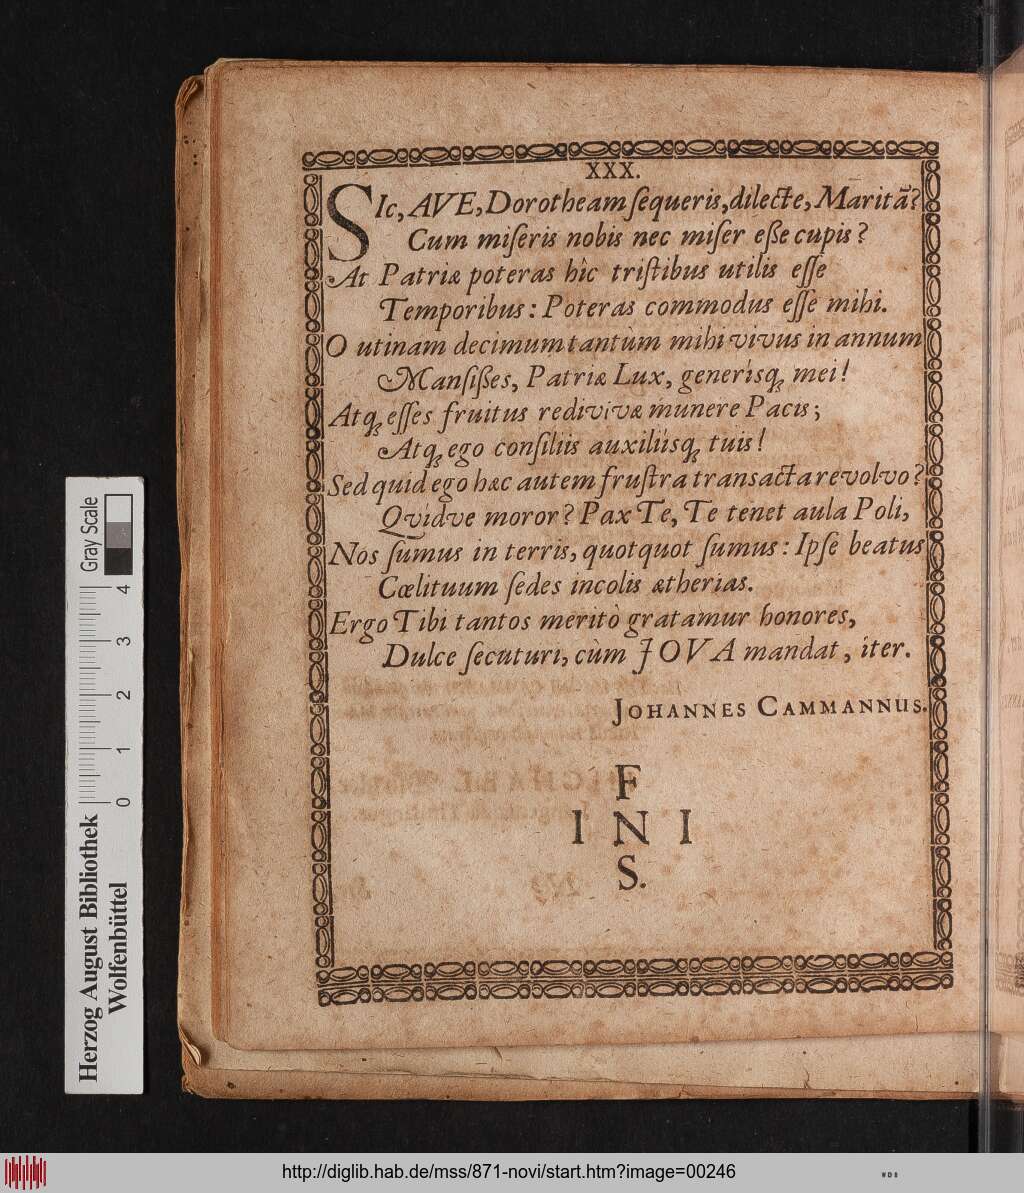 XXX.
SIc, AVE, Dorotheam ſequeris, dilecte, Maritã?
Cum miſeris nobis nec miſer eße cupis?
At Patriæ poteras hîc triſtibus utilis eſſe
Temporibus: Poteras commodus eſſe mihi.
O utinam decimum tantùm mihi vivus in annum
Manſißes, Patriæ Lux, generisq́; mei!
Atq; eſſes fruitus redivivæ munere Pacis;
Atq; ego conſiliis auxiliisq́; tuis!
Sed quid ego hæc autem fruſtra transacta revolvo?
Qvidve moror? Pax Te, Te tenet aula Poli,
Nos ſumus in terris, quotquot ſumus: Ipſe beatus
Cœlituum ſedes incolis ætherias.
Ergo Tibi tantos meritò gratamur honores,
Dulce ſecuturi, cùm JOVA mandat, iter.
JOHANNES CAMMANNUS.
F
I N I
S.
Herzog August Bibliothek
Wolfenbüttel
0 1 2 3 4
Gray Scale
http://diglib.hab.de/mss/871-novi/start.htm?image=00246